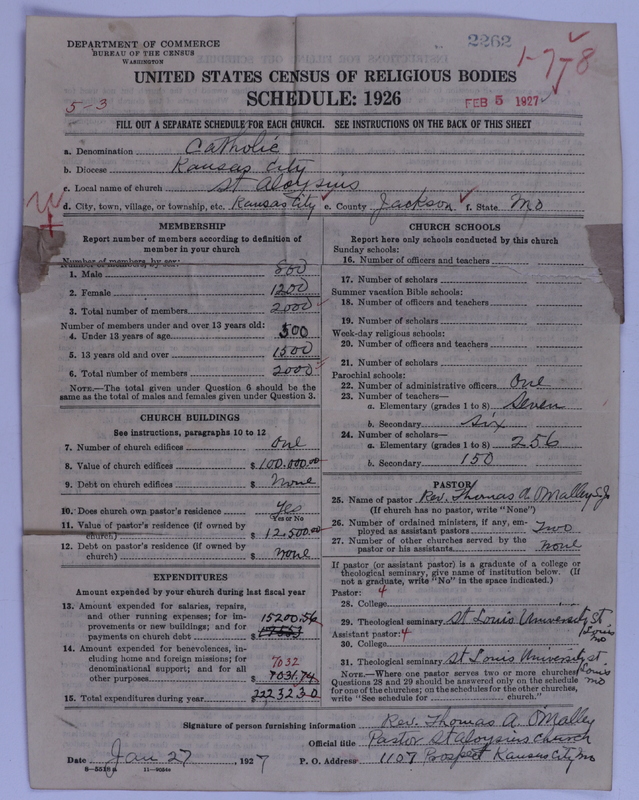 DEPARTMENT OF COMMERCE
BUREAU OF THE CENSUS
WASHINGTON
2262
1-7 7-8
UNITED STATES CENSUS OF RELIGIOUS BODIES
SCHEDULE: 1926
5-3
FEB 5 1927
FILL OUT A SEPARATE SCHEDULE FOR EACH CHURCH. SEE INSTRUCTIONS ON THE BACK OF THIS SHEET
a. Denomination Catholic
b. Diocese Kansas City
c. Local name of church St Aloysius
d. City, town, village, or township, etc. Kansas City e. County Jackson f. State Mo
MEMBERSHIP
Report number of members according to definition of
member in your church
Number of members, by sex:
1. Male 800
2. Female 1200
3. Total number of members 2000
Number of members under and over 13 years old:
4. Under 13 years of age 500
5. 13 years old and over 1500
6. Total number of members 2000
NOTE.—The total given under Question 6 should be the
same as the total of males and females given under Question 3.
CHURCH BUILDINGS
See instructions, paragraphs 10 to 12
7. Number of church edifices One
8. Value of church edifices $ 100,000.00
9. Debt on church edifices $ None
10. Does church own pastor's residence? Yes
Yes or No
11. Value of pastor's residence (if owned by
church) $ 12,500.00
12. Debt on pastor's residence (if owned by
church) $ none
EXPENDITURES
Amount expended by your church during last fiscal year
13. Amount expended for salaries, repairs,
and other running expenses; for im-
provements or new buildings; and for
payments on church debt $ 15200.56
14. Amount expended for benevolences, in-
cluding home and foreign missions; for
denominational support; and for all
other purposes $ 7032
7031.74
15. Total expenditures during year $ 22232.30
CHURCH SCHOOLS
Report here only schools conducted by this church
Sunday schools:
16. Number of officers and teachers
17. Number of scholars
Summer vacation Bible schools:
18. Number of officers and teachers
19. Number of scholars
Week-day religious schools:
20. Number of officers and teachers
21. Number of scholars
Parochial schools:
22. Number of administrative officers One
23. Number of teachers—
a. Elementary (grades 1 to 8) Seven
b. Secondary six
24. Number of scholars—
a. Elementary (grades 1 to 8) 256
b. Secondary 150
PASTOR
25. Name of pastor Rev. Thomas A. O'Malley S.J.
(If church has no pastor, write "None")
26. Number of ordained ministers, if any, em-
ployed as assistant pastors Two
27. Number of other churches served by the
pastor or his assistants none
If pastor (or assistant pastor) is a graduate of a college or
theological seminary, give name of institution below. (If
not a graduate, write "No" in the space indicated.)
Pastor: 4
28. College
29. Theological seminary St Louis University St Louis Mo
Assistant pastor: 4
30. College
31. Theological seminary St Louis University St Louis Mo
NOTE.—Where one pastor serves two or more churches,
Questions 28 and 29 should be answered only on the schedule
for one of the churches; on the schedules for the other churches,
write "See schedule for church."
Signature of person furnishing information Rev. Thomas A. O'Malley
Official title Pastor St Aloysius Church
Date Jan 27, 1927 P. O. Address 1107 Prospect Kansas City Mo
8-5518a 11-9064